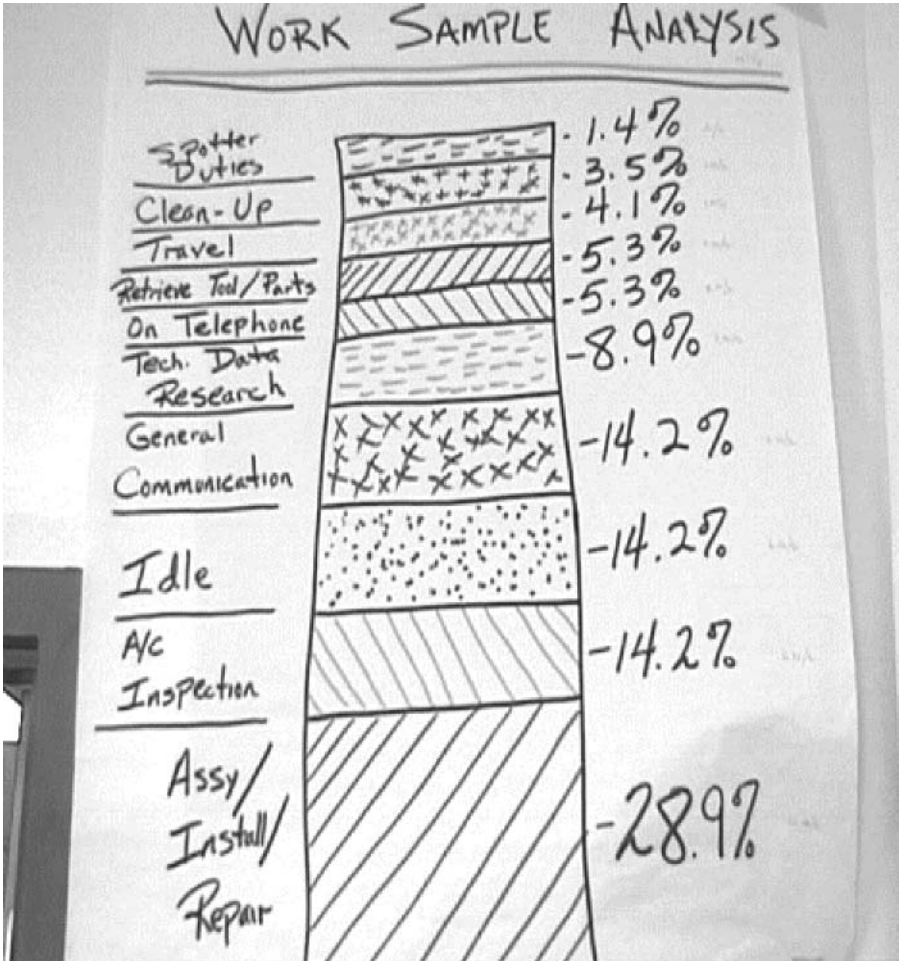 WORK SAMPLE ANALYSIS
Spotter
Duties
- 1.4%
Clean-Up
- 3.5%
Travel
- 4.1%
Retrieve Tool/Parts
- 5.3%
On Telephone
- 5.3%
Tech. Data
Research
- 8.9%
General
Communication
- 14.2%
Idle
- 14.2%
A/c
Inspection
- 14.2%
Assy/
Install/
Repair
- 28.9%